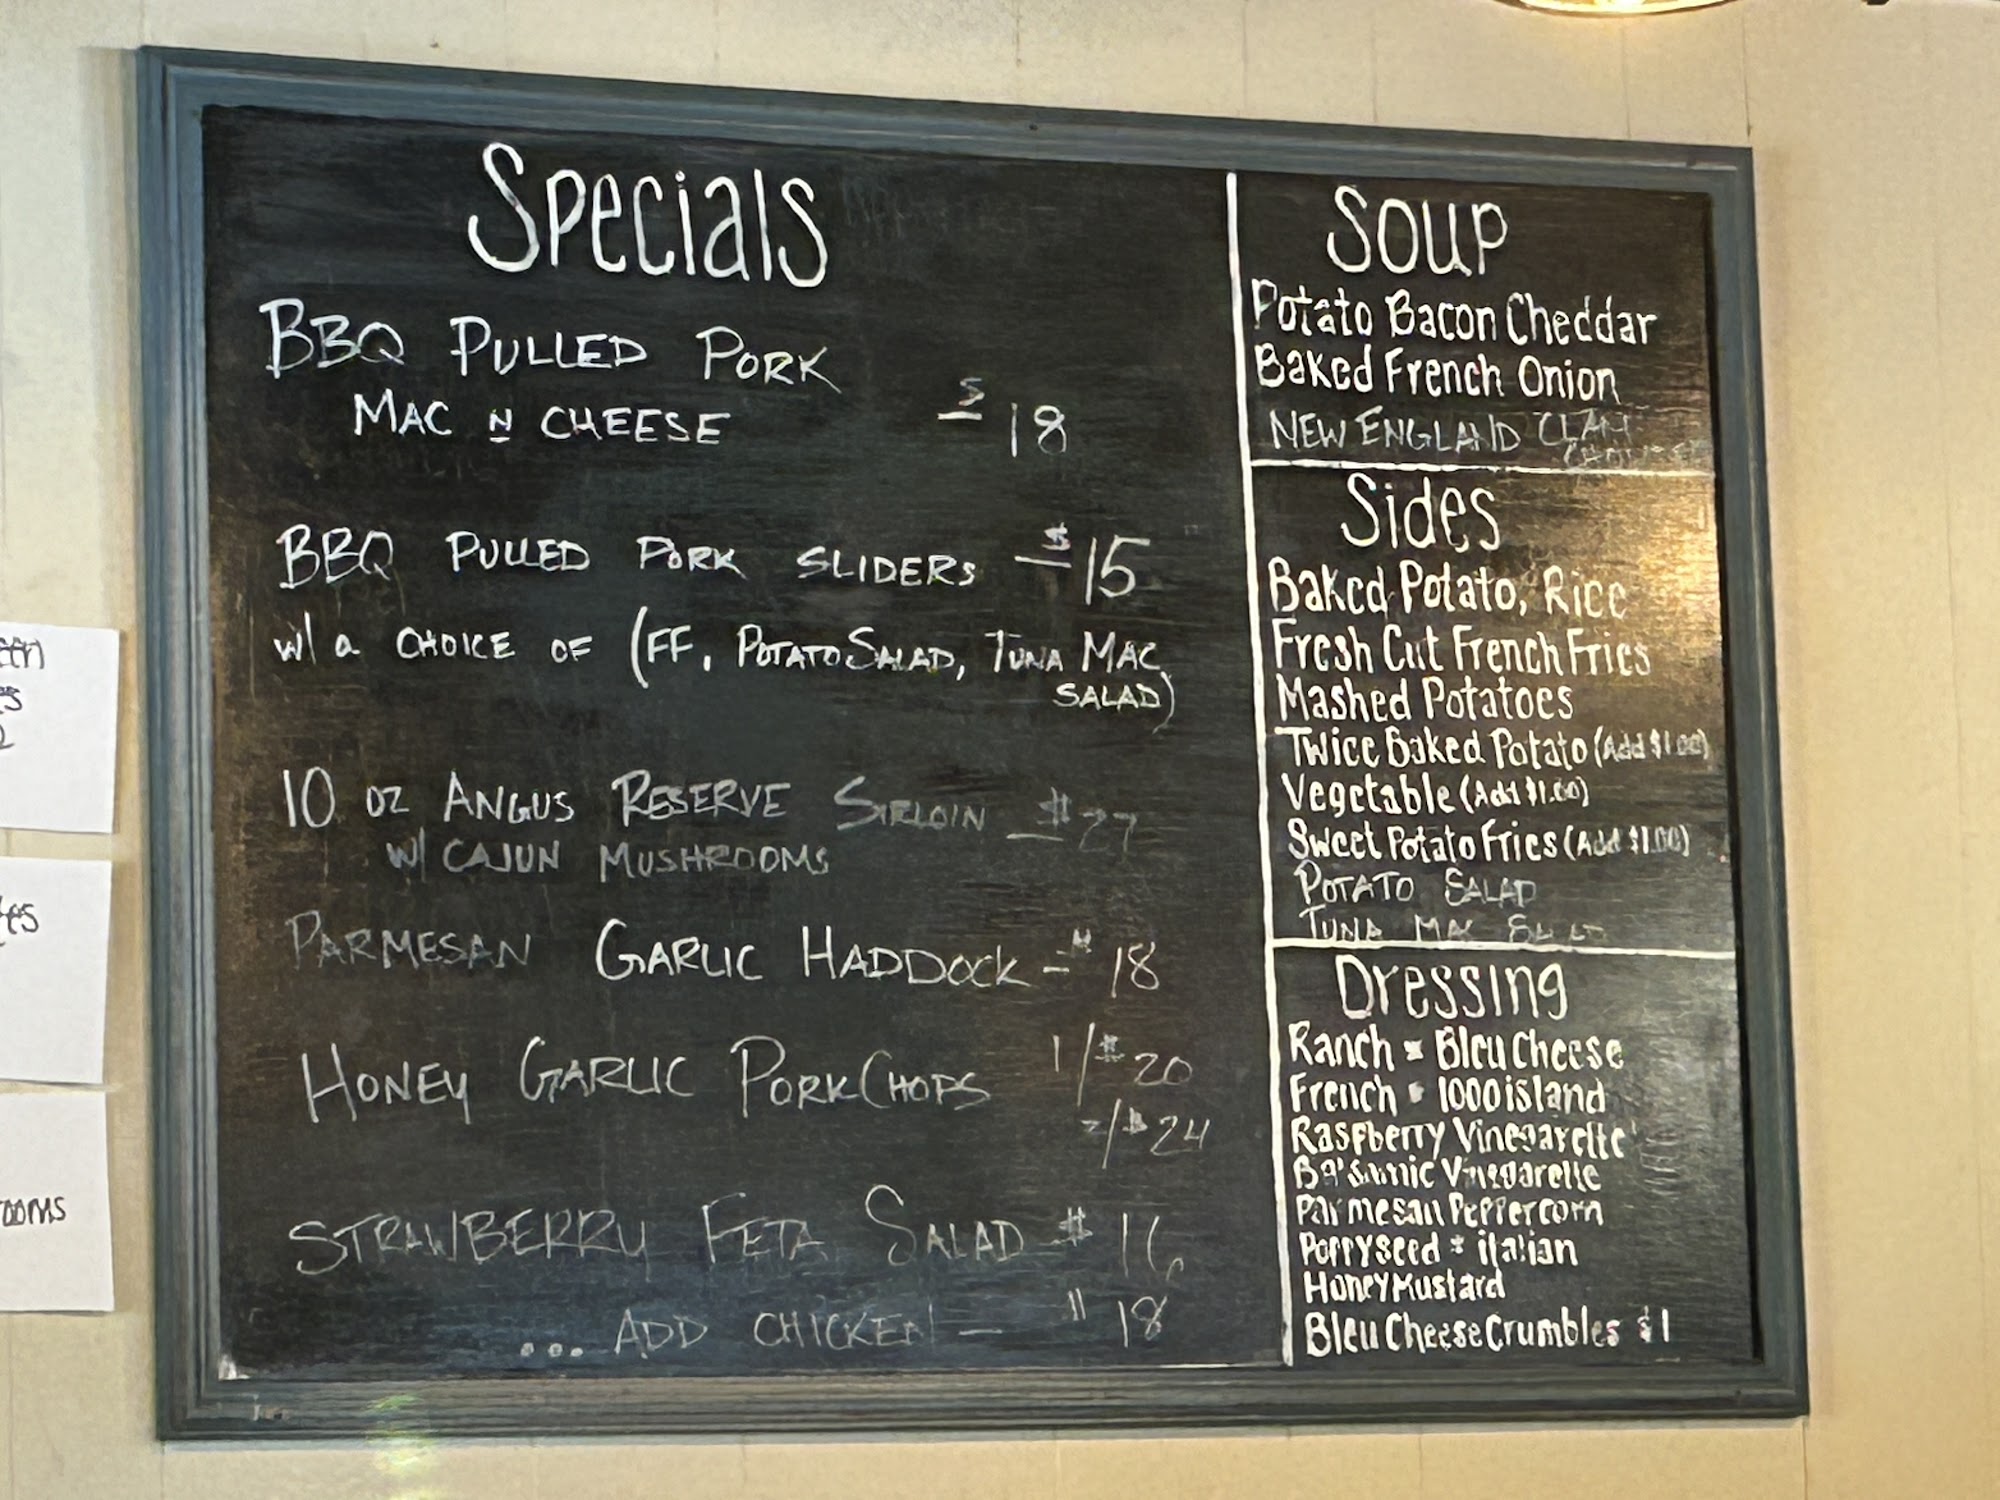 Specials
BBQ PULLED PORK
MAC N CHEESE - $18
BBQ PULLED PORK SLIDERS - $15
w/ a CHOICE OF (FF, POTATO SALAD, TUNA MAC
SALAD)
10 OZ ANGUS RESERVE SIRLOIN - $27
W/ CAJUN MUSHROOMS
PARMESAN GARLIC HADDOCK - $18
HONEY GARLIC PORK CHOPS 1/$20
2/$24
STRAWBERRY FETA SALAD $16
... ADD CHICKEN - $18
Soup
Potato Bacon Cheddar
Baked French Onion
NEW ENGLAND CLAM
Sides
Baked Potato, Rice
Fresh Cut French Fries
Mashed Potatoes
Twice Baked Potato (Add $1.00)
Vegetable (Add $1.00)
Sweet Potato Fries (Add $1.00)
POTATO SALAD
TUNA MAC SALAD
Dressing
Ranch * Bleu Cheese
French * 1000 island
Raspberry Vinegarette
Balsamic Vinegarette
Parmesan Peppercorn
Poppyseed * italian
Honey Mustard
Bleu Cheese Crumbles $1
ooms